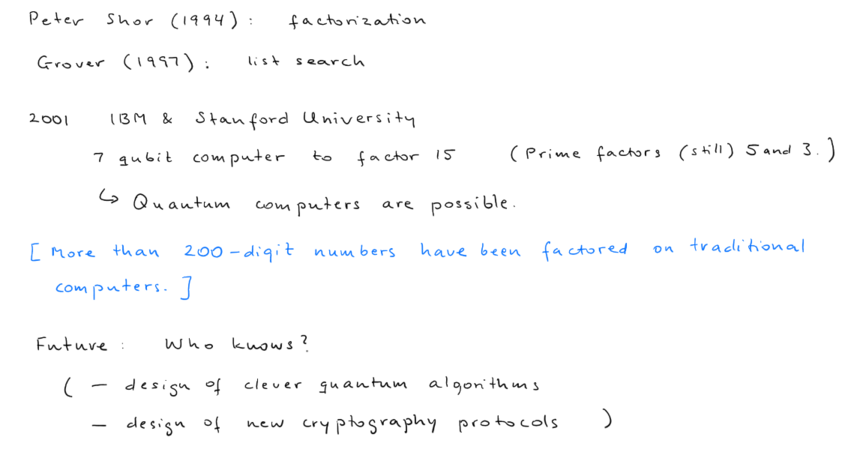 Peter Shor (1994): factorization
Grover (1997): list search
2001 IBM & Stanford University
7 qubit computer to factor 15 (Prime factors (still) 5 and 3.)
↳ Quantum computers are possible.
[More than 200-digit numbers have been factored on traditional
computers.]
Future: Who knows?
(– design of clever quantum algorithms
– design of new cryptography protocols)